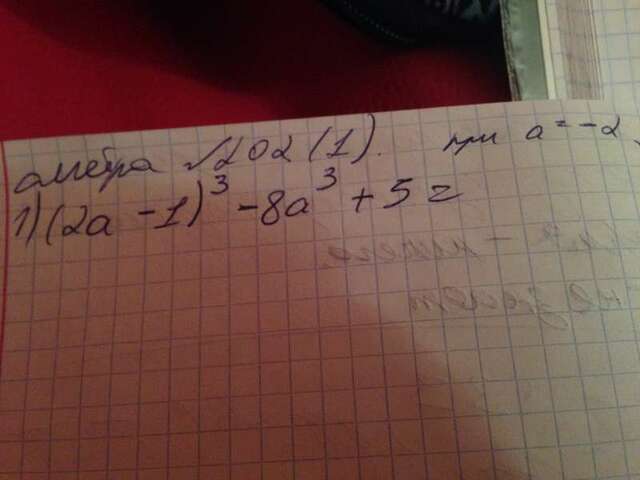 алгебра №202(1). при a=-2
1) (2a-1)³-8a³+5=